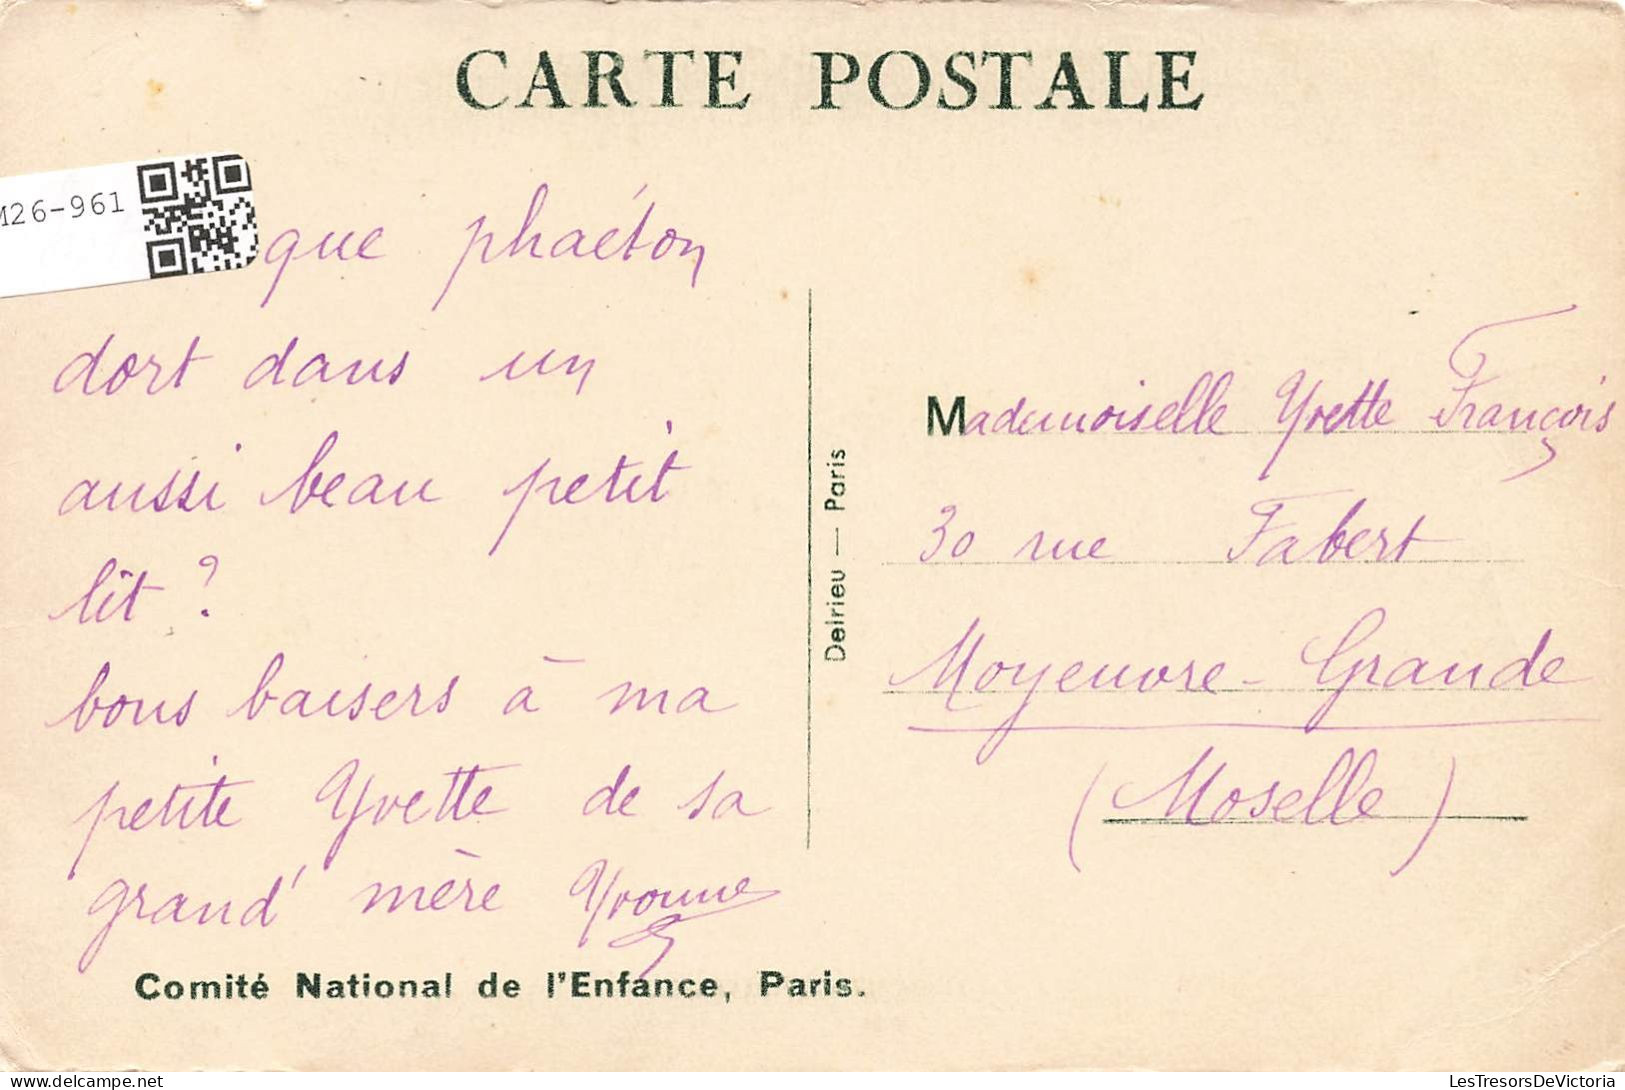 CARTE POSTALE
M26-961
que phaéton
dort dans un
aussi beau petit
lit ?
bons baisers à ma
petite Yvette de sa
grand' mère Yvonne
Comité National de l'Enfance, Paris.
Delrieu — Paris
Mademoiselle Yvette François
30 rue Fabert
Moyeuvre-Grande
(Moselle)
LesTresorsDeVictoria